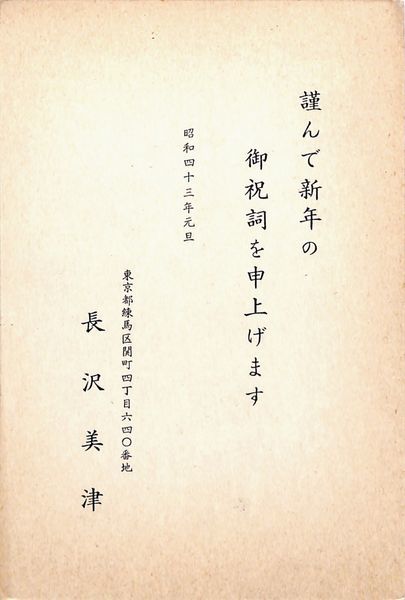 謹んで新年の
御祝詞を申上げます
昭和四十三年元旦
東京都練馬区関町四丁目六四〇番地
長沢美津